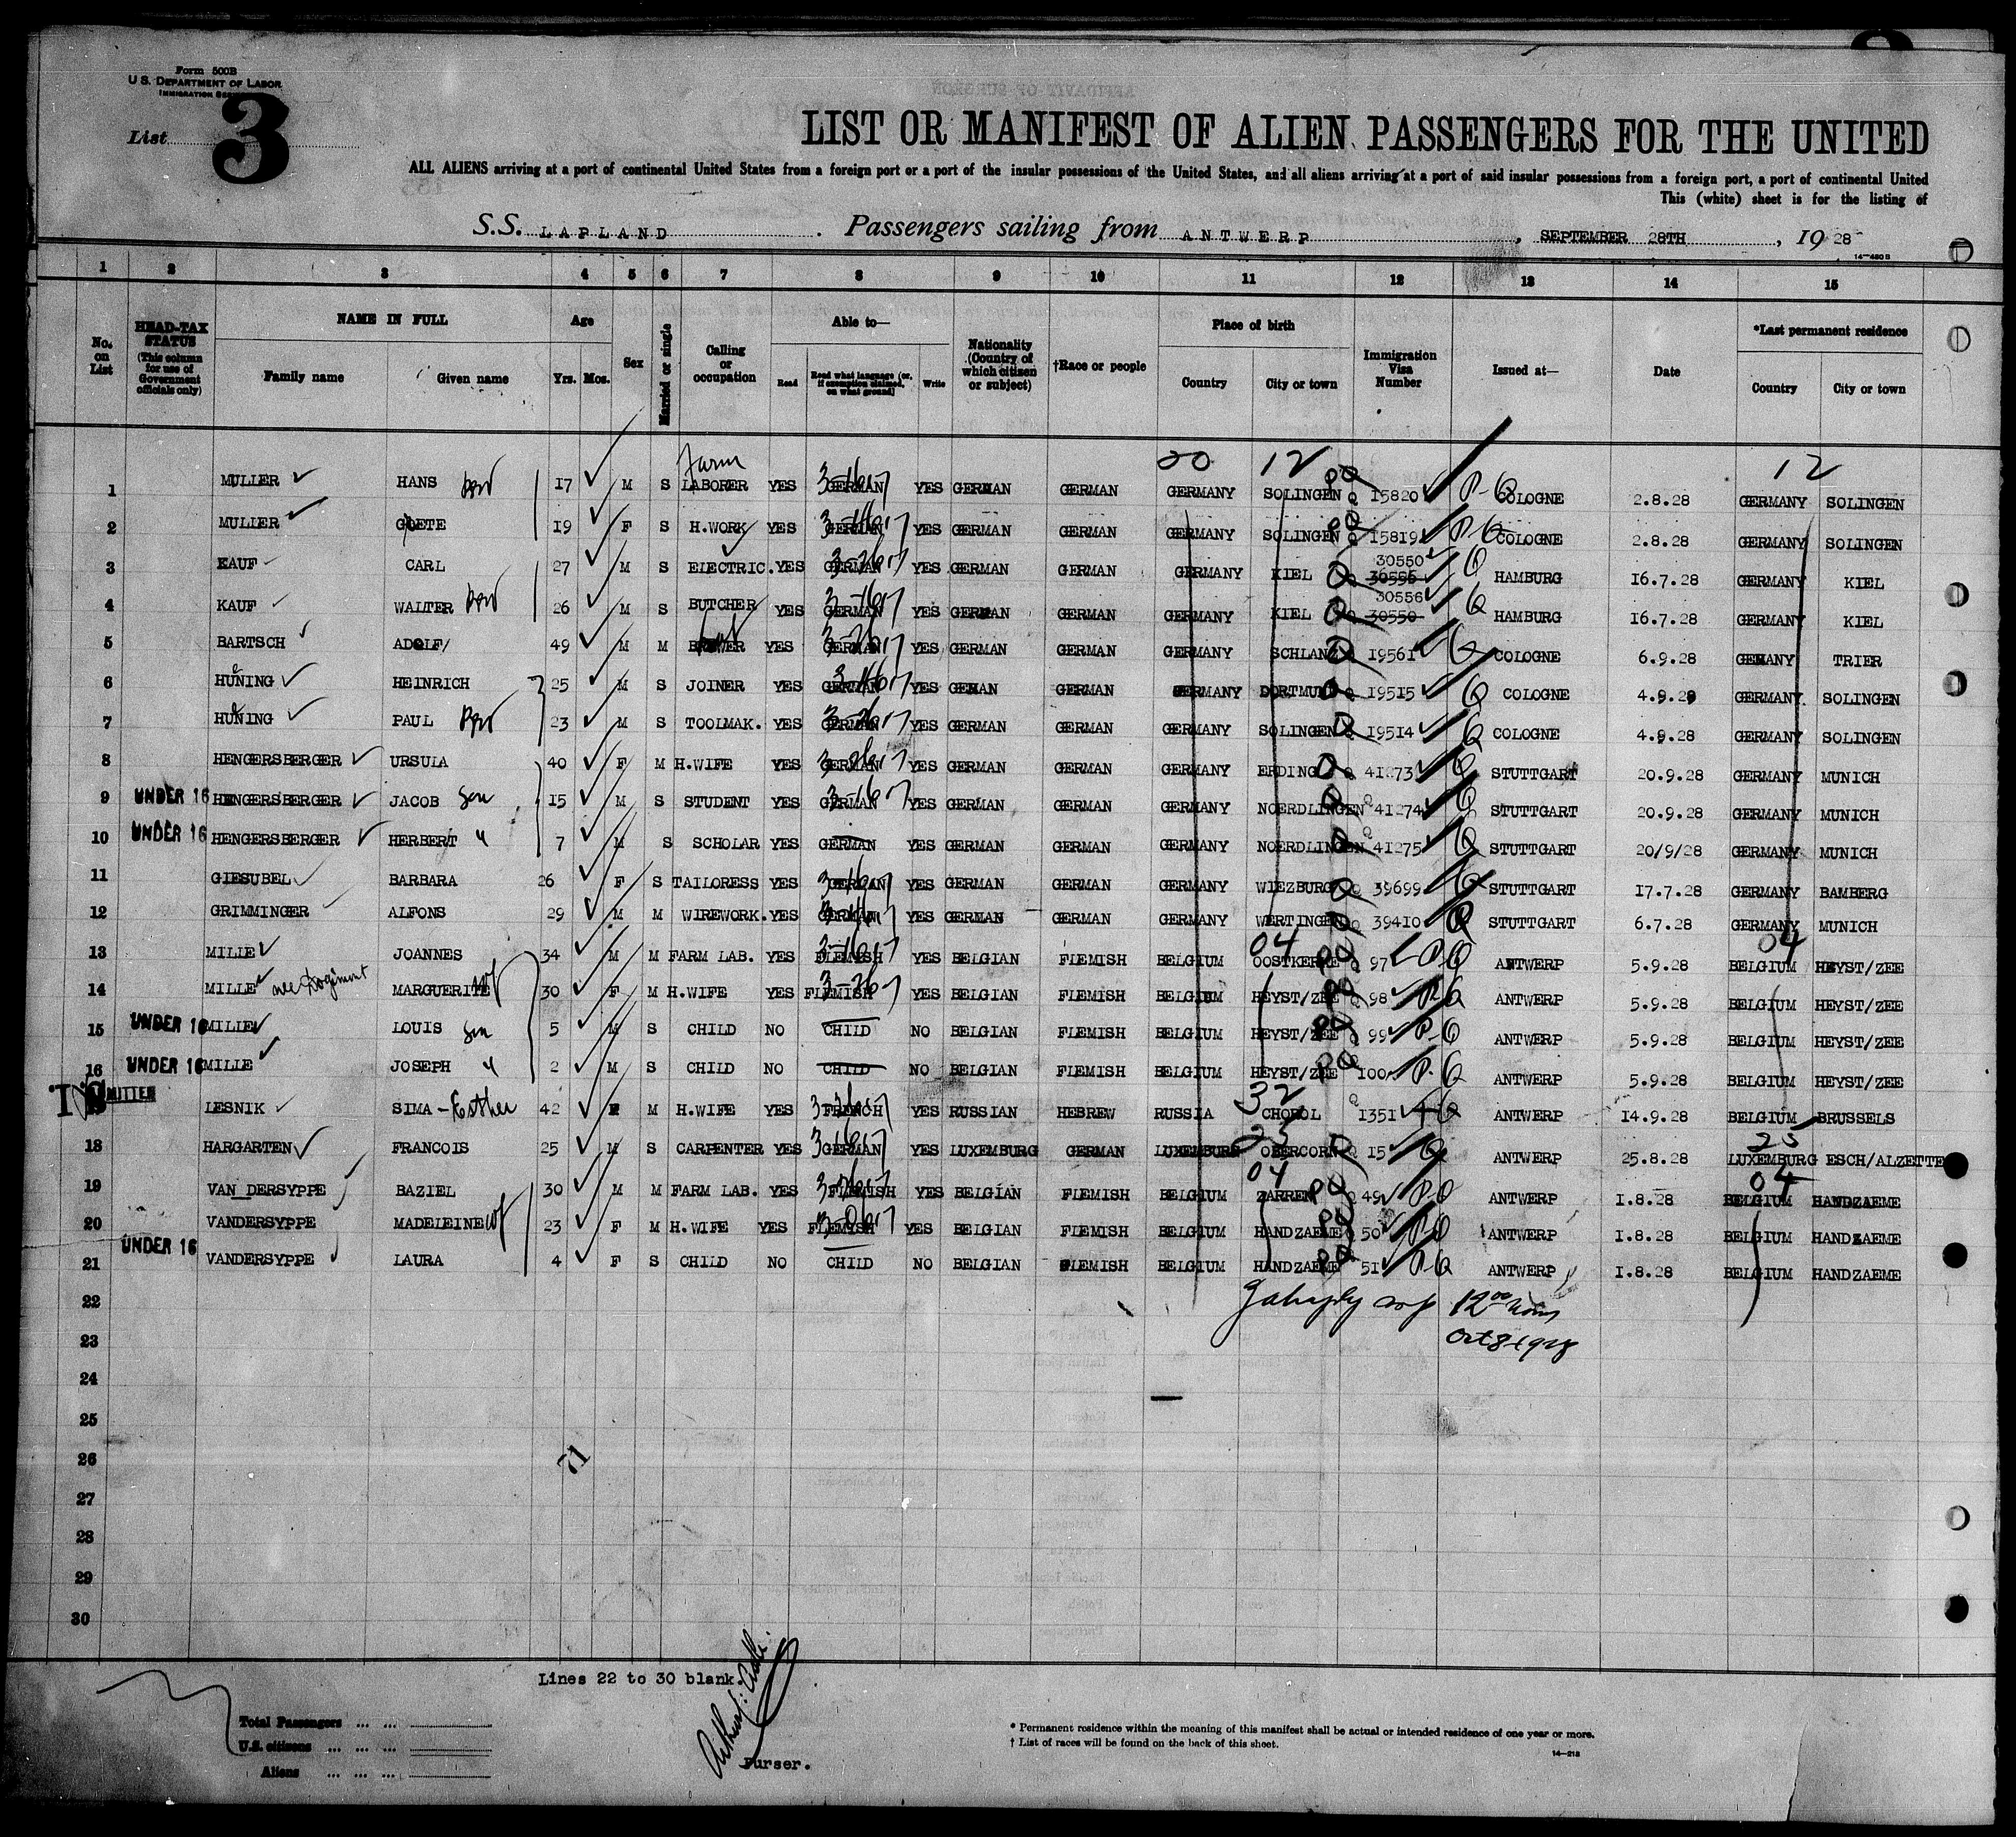 Form 500B
U. S. DEPARTMENT OF LABOR
IMMIGRATION
List 3
LIST OR MANIFEST OF ALIEN PASSENGERS FOR THE UNITED
ALL ALIENS arriving at a port of continental United States from a foreign port or a port of the insular possessions of the United States, and all aliens arriving at a port of said insular possessions from a foreign port, a port of continental United
This (white) sheet is for the listing of
S.S. LAPLAND . Passengers sailing from ANTWERP , SEPTEMBER 28TH , 19 28
14—480 B
1 2 3 4 5 6 7 8 9 10 11 12 13 14 15
No. on List
HEAD-TAX STATUS (This column for use of Government officials only)
NAME IN FULL Family name Given name
Age Yrs. Mos.
Sex
Married or single
Calling or occupation
Able to— Read Read what language (or, if exemption claimed, on what ground) Write
Nationality (Country of which citizen or subject)
†Race or people
Place of birth Country City or town
Immigration Visa Number
Issued at—
Date
*Last permanent residence Country City or town
Farm 20 12 12
1 MULLER HANS 17 M S LABORER YES GERMAN YES GERMAN GERMAN GERMANY SOLINGEN Q 15820 COLOGNE 2.8.28 GERMANY SOLINGEN
2 MULLER 19 F S H.WORK YES GERMAN YES GERMAN GERMAN GERMANY SOLINGEN Q 15819 COLOGNE 2.8.28 GERMANY SOLINGEN
3 KAUF CARL 27 M S ELECTRIC. YES GERMAN YES GERMAN GERMAN GERMANY KIEL 30550 30556 HAMBURG 16.7.28 GERMANY KIEL
4 KAUF WALTER 26 M S BUTCHER YES GERMAN YES GERMAN GERMAN GERMANY KIEL 30556 30550 HAMBURG 16.7.28 GERMANY KIEL
5 BARTSCH ADOLF 49 M M YES GERMAN YES GERMAN GERMAN GERMANY SCHLANZ 19561 COLOGNE 6.9.28 GEMANY TRIER
6 HUNING HEINRICH 25 M S JOINER YES GERMAN YES GEMAN GERMAN GERMANY DORTMUND Q 19515 COLOGNE 4.9.28 GERMANY SOLINGEN
7 HUNING PAUL 23 M S TOOLMAK. YES GERMAN YES GERMAN GERMAN GERMANY SOLINGEN 19514 COLOGNE 4.9.28 GERMANY SOLINGEN
8 HENGERSBERGER URSULA 40 F M H.WIFE YES GERMAN YES GERMAN GERMAN GERMANY ERDING Q 41273 STUTTGART 20.9.28 GERMANY MUNICH
9 UNDER 16 HENGERSBERGER JACOB Son 15 M S STUDENT YES GERMAN YES GERMAN GERMAN GERMANY NOERDLINGEN Q 41274 STUTTGART 20.9.28 GERMANY MUNICH
10 UNDER 16 HENGERSBERGER HERBERT " 7 M S SCHOLAR YES GERMAN YES GERMAN GERMAN GERMANY NOERDLINGEN Q 41275 STUTTGART 20/9/28 GERMANY MUNICH
11 GIESUBEL BARBARA 26 F S TAILORESS YES GERMAN YES GERMAN GERMAN GERMANY WIEZBURG Q 39699 STUTTGART 17.7.28 GERMANY BAMBERG
12 GRIMMINGER ALFONS 29 M M WIREWORK. YES GERMAN YES GERMAN GERMAN GERMANY WERTINGEN Q 39410 STUTTGART 6.7.28 GERMANY MUNICH
04 04
13 MILLE JOANNES 34 M M FARM LAB. YES FLEMISH YES BELGIAN FLEMISH BELGIUM OOSTKERKE Q 97 ANTWERP 5.9.28 BELGIUM HEYST/ZEE
14 MILLE nee MARGUERITE wf 30 F M H.WIFE YES FLEMISH YES BELGIAN FLEMISH BELGIUM HEYST/ZEE Q 98 ANTWERP 5.9.28 BELGIUM HEYST/ZEE
15 UNDER 16 MILLE LOUIS Son 5 M S CHILD NO CHILD NO BELGIAN FLEMISH BELGIUM HEYST/ZEE Q 99 ANTWERP 5.9.28 BELGIUM HEYST/ZEE
16 UNDER 16 MILLE JOSEPH " 2 M S CHILD NO CHILD NO BELGIAN FLEMISH BELGIUM HEYST/ZEE Q 100 ANTWERP 5.9.28 BELGIUM HEYST/ZEE
32
LESNIK SIMA - Esther 42 F M H.WIFE YES FRENCH YES RUSSIAN HEBREW RUSSIA CHOROL Q 1351 ANTWERP 14.9.28 BELGIUM BRUSSELS
25 25
18 HARGARTEN FRANCOIS 25 M S CARPENTER YES GERMAN YES LUXEMBURG GERMAN LUXEMBURG OBERCORN Q 15 ANTWERP 25.8.28 LUXEMBURG ESCH/ALZETTE
04 04
19 VAN DERSYPPE BAZIEL 30 M M FARM LAB. YES FLEMISH YES BELGIAN FLEMISH BELGIUM ZARREN Q 49 ANTWERP 1.8.28 BELGIUM HANDZAEME
20 VANDERSYPPE MADELEINE wf 23 F M H.WIFE YES FLEMISH YES BELGIAN FLEMISH BELGIUM HANDZAEME 50 ANTWERP 1.8.28 BELGIUM HANDZAEME
21 UNDER 16 VANDERSYPPE LAURA 4 F S CHILD NO CHILD NO BELGIAN FLEMISH BELGIUM HANDZAEME 51 ANTWERP 1.8.28 BELGIUM HANDZAEME
22 12 00 noon
23 Oct 8 1928
24
25
26 71
27
28
29
30
Lines 22 to 30 blank.
Total Passengers
U.S. citizens
Aliens
Purser.
* Permanent residence within the meaning of this manifest shall be actual or intended residence of one year or more.
† List of races will be found on the back of this sheet.
14—218